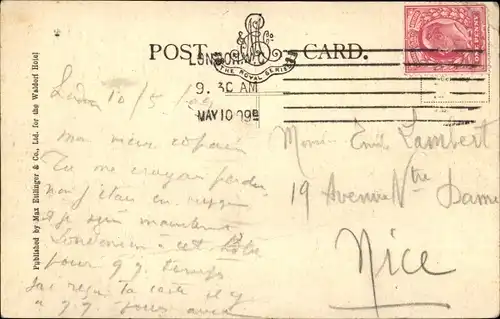 POST CARD.
THE ROYAL SERIES
LONDON. W.C
9. 30 AM
MAY 10 09
Published by Max Ettlinger & Co., Ltd. for the Waldorf Hotel
10/5/09
mon vieux copain
Tu me croyais perdu
non j'étais en
et je suis maintenant
Londonien à cet
pour q.q. temps
J'ai reçu ta carte il y
a q.q. jours avec
Monsieur Emile Lambert
19 Avenue Ntre Dame
Nice